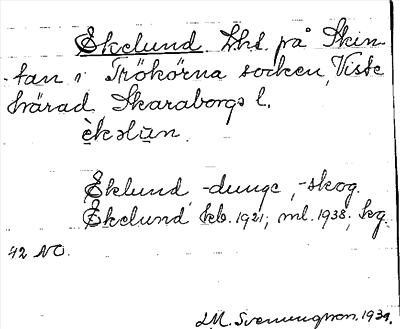 Ekelund. Lht. på Skin-
tan i Trökörna socken, Viste
härad. Skaraborgs l.
èkəlùn.
Eklund, -dunge, -skog.
Ekelund kb. 1921, ml. 1938, kg.
42 NO.
LM. Svenungsson. 1939.